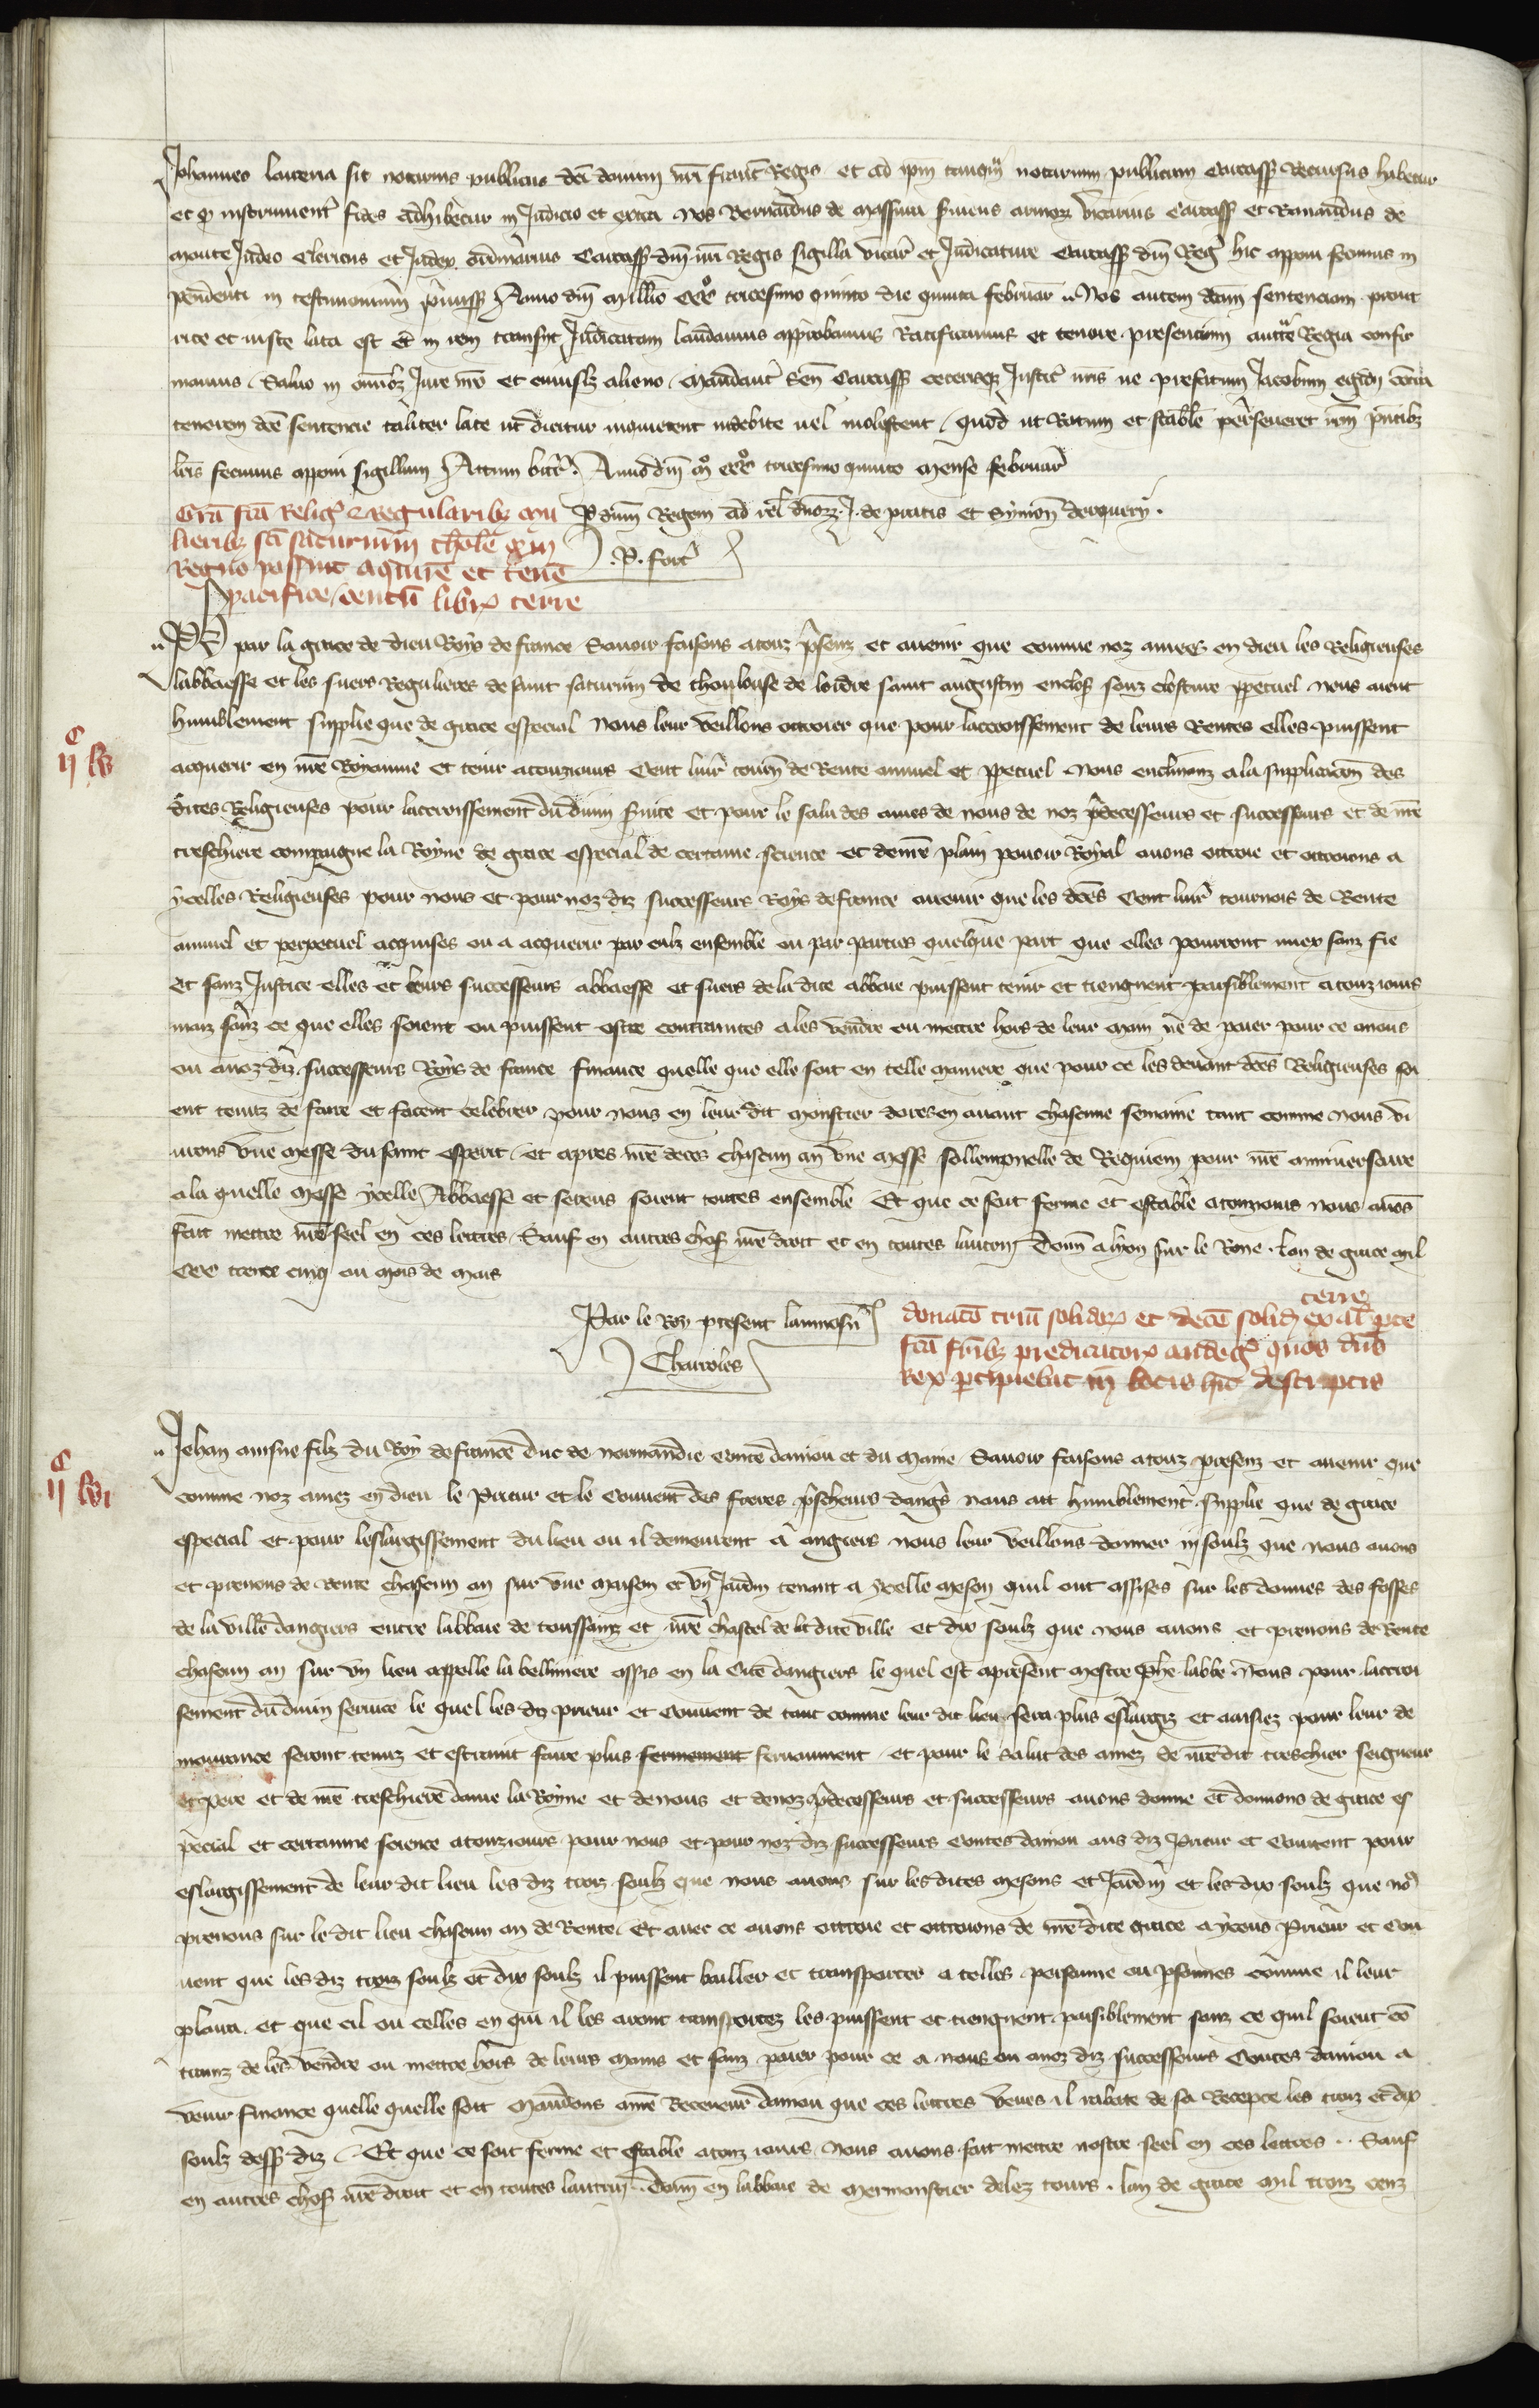 Johannes Laurencii sit notarius publicus dci domini nri Franc Regis et ad ipm tanqm notarium publicum Carcass recursus habetur
et q instrument fides adhibetur in Judicio et extra Nos Bernardus de serviens armor vicarius Carcass et Ramundus de
monte Judeo clericus et Judex ordinarius Carcass dni nri Regis sigilla vicar et Judicature Carcass dni Reg hic apponi fecimus in
pendenti in testimonium premiss Anno dni Millo CCCo tricesimo quinto die quinta februar Nos autem dcam sentenciam prout
rite et iuste lata est et in rem transiit Judicatam laudamus approbamus Ratificamus et tenore presencium auctte Regia confir
mamus Salvo in omibz Jure nro et cuiuslz alieno Mandant Sen Carcass ceterisqz Justic nris ne prefatum Jacobum contra
tenorem dce sentencie taliter late ut dicitur moverent indebite vel molestent Quod ut Ratum et stabile perseveret nrm pntibz
lris fecimus apponi sigillum Actum Anno dni mo CCCo tricesimo quinto mense februar
Gra fca Religs Regularibz mu
P dnm Regem ad rel dnorz J de pratis et Symon
lieribz sci saturnini thole q in
P. fort
Regno possint aqirere et tenere
pacifice centum librar terre
Ph par la grace de dieu Roys de france Savoir faisons a touz psenz et avenir que comme noz amees en dieu les Religieuses
labbaesse et les suers Regulieres de saint saturnin de tholouse de lordre saint augustin encloses souz closture ppetuel nous aient
humblement supplie que de grace especial nous leur veillons ottroier que pour lacroissement de leurs Rentes elles puissent
ij c lv
acquerir en nre Royaume et tenir a touzjours Cent livr tourn de Rente annuel et ppetuel Nous enclinanz a la supplicacion des
dites Religieuses pour lacroissement du divin servite et pour le salu des ames de nous de noz pdecesseurs et successeurs et de nre
treschiere compaigne la Royne de grace especial de certaine science et de nre plain povoir Royal avons ottroie et ottroions a
ycelles Religieuses pour nous et pour noz diz successeurs Roys de france avenir que les dces Cent livr tournois de Rente
annuel et perpetuel acquises ou a acquerir par eulz ensemble ou par parties quelque part que elles pourront miex sanz fie
et sanz Justice elles et leurs successeurs abbaesse et suers de la dite abbaie puissent tenir et tiengnent paisiblement a touzjours
mais sanz ce que elles soient ou puissent estre contraintes a les vendre ou mettre hors de leur main ne de paier pour ce a nous
ou a noz diz successeurs Roys de france finance quelle que elle soit en telle maniere que pour ce les devant dces Religieuses soi
ent tenuz de faire et facent celebrer pour nous en leur dit monstier dores en avant chascune semaine tant comme nous vi
vrons une messe du saint esperit et apres nre deces chascun an une messe sollempnelle de Requiem pour nre anniversaire
a la quelle messe ycelle Abbaesse et sereurs soient toutes ensemble Et que ce soit ferme et estable a touzjours nous avons
fait mettre nre seel en ces lettres Sauf en autres choses nre droit et en toutes lautruy Donn a lyon sur le Rone Lan de grace mil
CCC trente cinq ou mois de mars
Par le Roy present laumosn
donaco trium solidor et decem solid ex alt pte terre
Charoles
fca fribz predicator andeg quos dns
Rex pcipiebat in locis hic descriptis
Jehan ainsne filz du Roy de france duc de normandie conte danjou et du maine Savoir faisons a touz presenz et avenir que
ij c lvi
comme noz amez en dieu le Prieur et le Couvent des freres prescheurs dangs nous ait humblement supplie que de grace
especial et pour leslargissement du lieu ou il demeurent a angiers nous leur veillons donner iij soulz que nous avons
et prenons de rente chascun an sur une maison et un Jardin tenant a ycelle meson quil ont assises sur les douves des fosses
de la ville dangiers entre labbaie de toussainz et nre chastel de la dite ville et dix soulz que nous avons et prenons de Rente
chascun an sur un lieu appelle la belliniere assis en la Cite dangiers le quel est a present mestre Phe labbe Nous pour lacroi
sement du divin service le quel les diz prieur et Couvent de tant comme leur dit lieu sera plus eslargiz et aaisiez pour leur de
mourance seront tenuz et estraint faire plus fermement fervaument et pour le salut des amez de nre dit treschier seigneur
et pere et de nre treschiere dame la Royne et de nous et de noz pdecesseurs et successeurs avons donne et donnons de grace es
pecial et certainne science a touzjours pour nous et pour noz diz successeurs Contes danjou aus diz Prieur et Couvent pour
eslargissement de leur dit lieu les diz troiz soulz que nous avons sur les dites mesons et Jardin et les dix soulz que nos
prenons sur le dit lieu chascun an de Rente Et avec ce avons ottroie et ottroions de nre dite grace a yceus Prieur et Cou
vent que les diz troiz soulz et dix soulz il puissent bailler et transporter a telles persoune ou psonnes comme il leur
plaira et que cil ou celles en qui il les aront transportez les puissent et tiengnent paisiblement sanz ce quil soient con
trainz de les vendre ou mettre hors de leurs mains et sanz paier pour ce a nous ou a noz diz successeurs Contes danjou a
venir finance quelle quelle soit Mandons a nre Receveur danjou que ces lettres veues il rabate de sa Recepte les troiz et dix
soulz dess diz Et que ce soit ferme et estable a touz jours nous avons fait mettre nostre seel en ces lettres Sauf
en autres choses nre droit et en toutes lautruy Donn en labbaie de mermonstier delez tours lan de grace mil troiz cenz